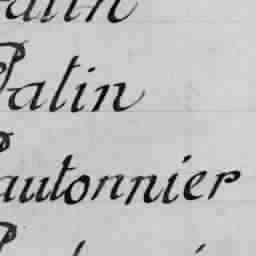 Patin
Patin
Pautonnier